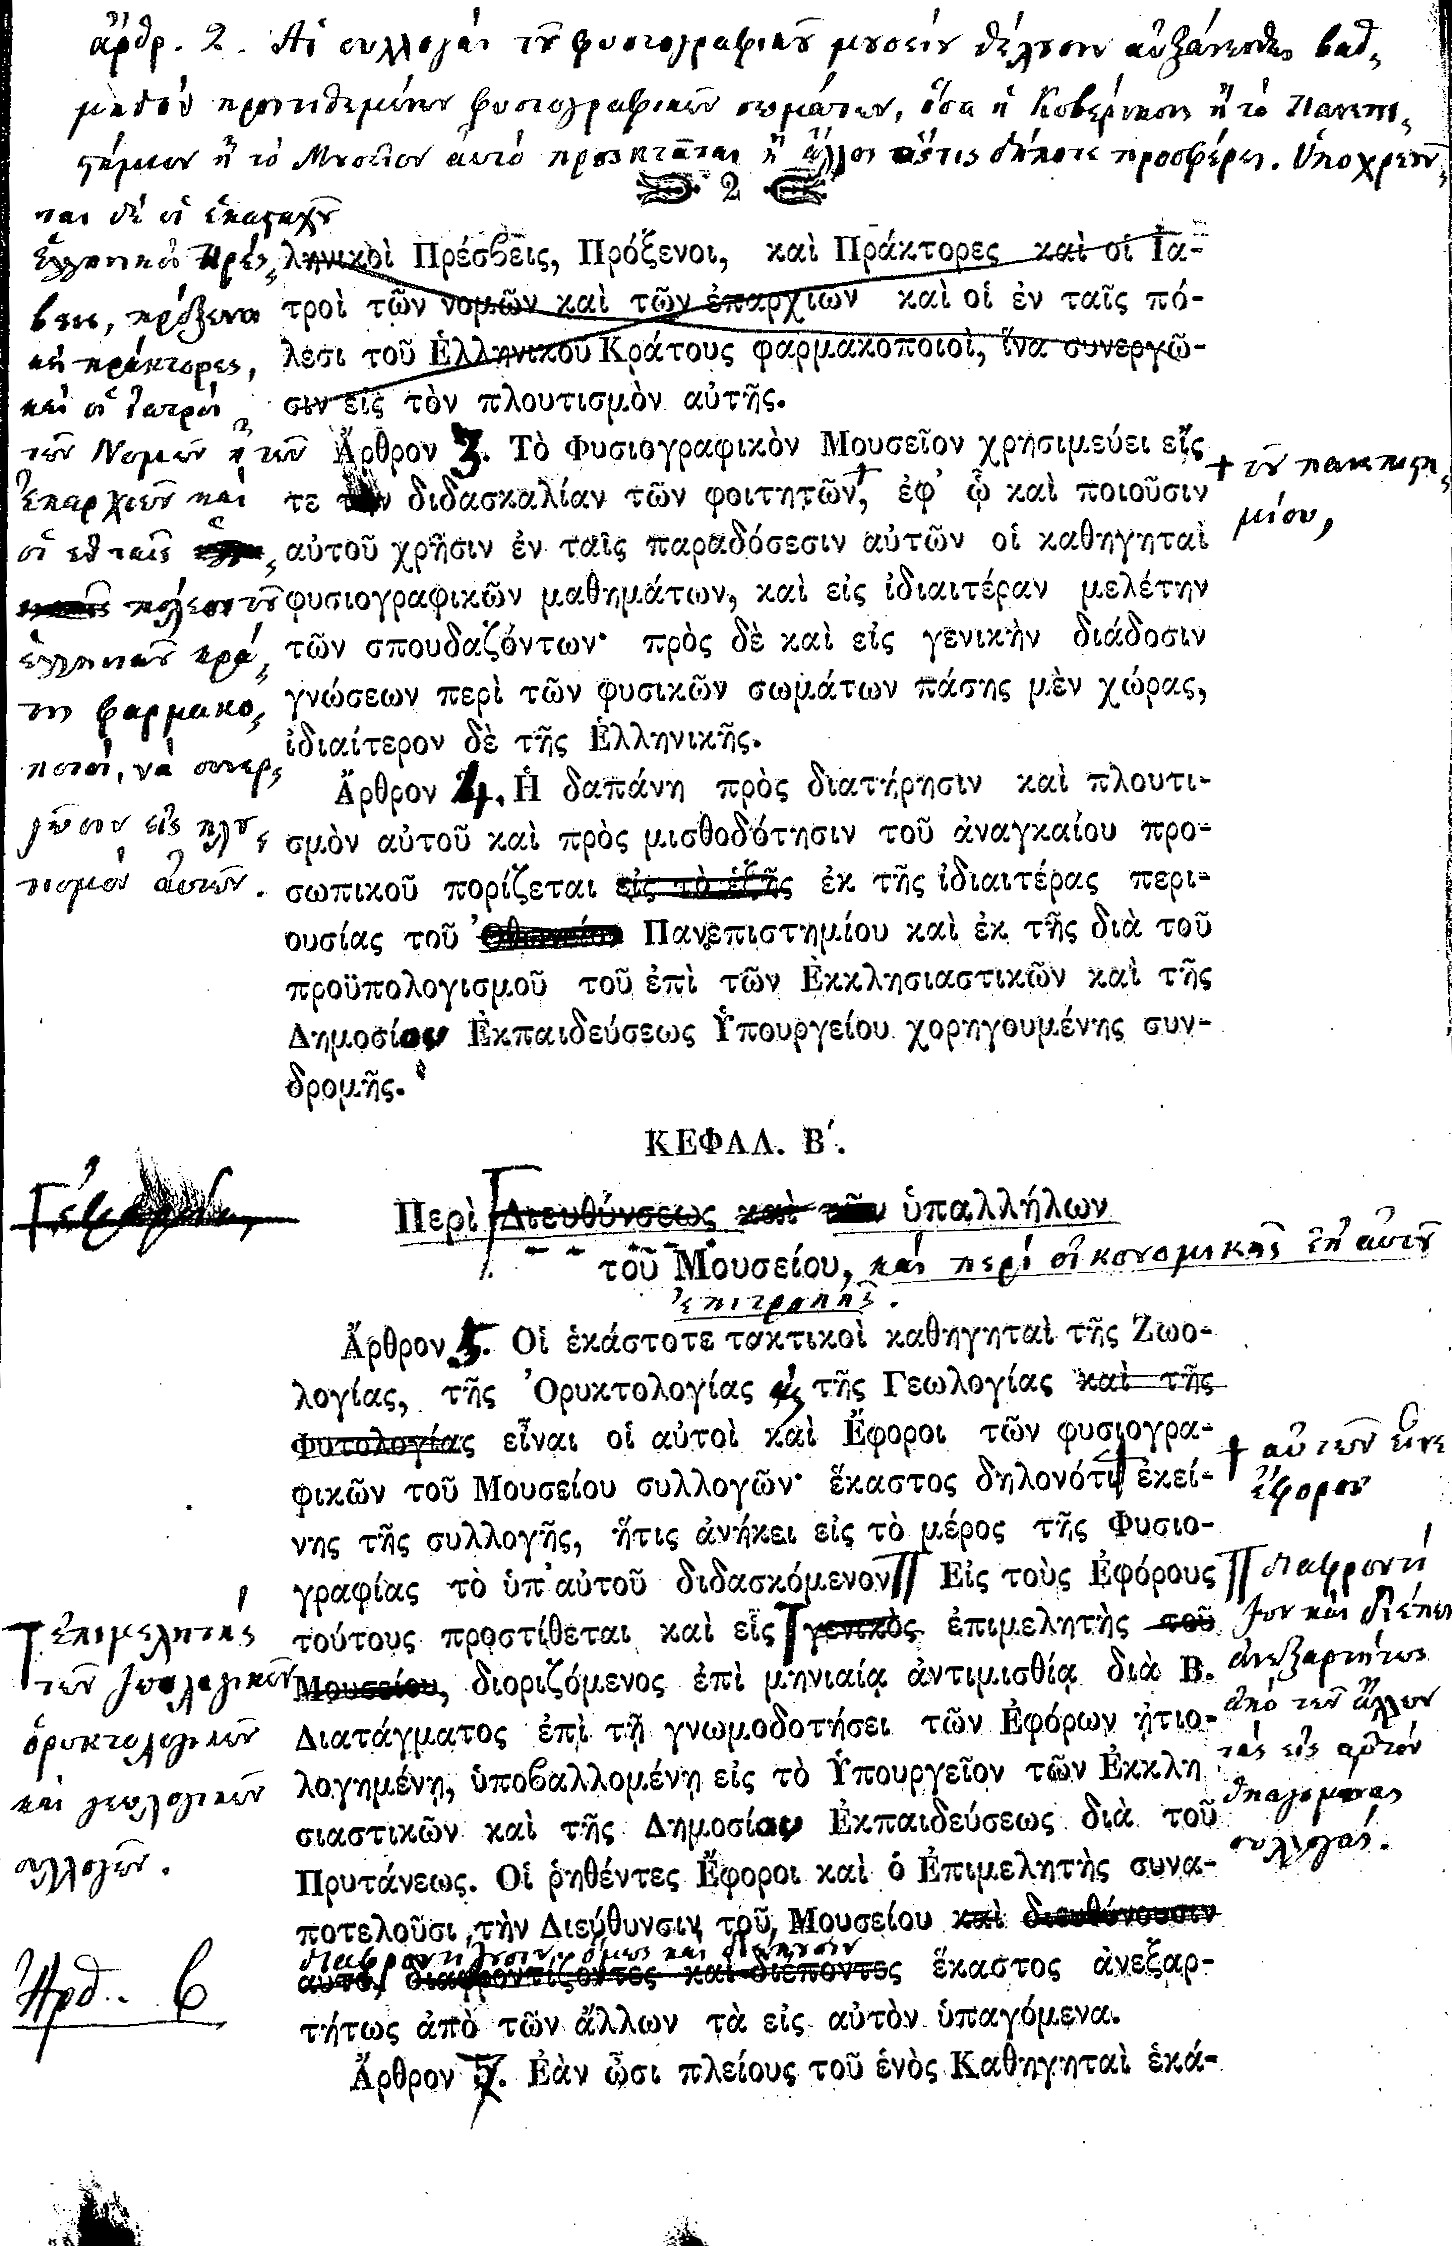 ἄρθρ. 2. Αἱ συλλογαὶ τοῦ φυσιογραφικοῦ μουσείου θέλουσιν αὐξάνεσθαι βαθ-
μηδὸν προστιθεμένων φυσιογραφικῶν σωμάτων, ὅσα ἡ Κυβέρνησις ἢ τὸ Πανεπι-
στήμιον ἢ τὸ Μουσεῖον αὐτὸ προσκτᾶται ἢ ἄλλος ὅστις δήποτε προσφέρει. Ὑποχρεοῦν-
2
ται δὲ οἱ ἑκασταχοῦ
ἑλληνικοὶ Πρέσ-
βεις, πρόξενοι
καὶ πράκτορες,
καὶ οἱ ἰατροὶ
τῶν Νομῶν ἢ τῶν
Ἐπαρχιῶν καὶ
οἱ ἐν ταῖς
πόλεσι τοῦ
ἑλληνικοῦ κρά-
τους φαρμακο-
ποιοί, νὰ συνερ-
γῶσιν εἰς πλου-
τισμὸν αὐτῶν.
ληνικοὶ Πρέσβεις, Πρόξενοι, καὶ Πράκτορες καὶ οἱ Ἰα-
τροὶ τῶν νομῶν καὶ τῶν ἐπαρχιῶν καὶ οἱ ἐν ταῖς πό-
λεσι τοῦ Ἑλληνικοῦ Κράτους φαρμακοποιοὶ, ἵνα συνεργῶ-
σιν εἰς τὸν πλουτισμὸν αὐτῆς.
Ἄρθρον 3. Τὸ Φυσιογραφικὸν Μουσεῖον χρησιμεύει εἴς
τε τὴν διδασκαλίαν τῶν φοιτητῶν, ἐφ' ᾧ καὶ ποιοῦσιν
+ τοῦ πανεπιστη-
μίου,
αὐτοῦ χρῆσιν ἐν ταῖς παραδόσεσιν αὐτῶν οἱ καθηγηταὶ
φυσιογραφικῶν μαθημάτων, καὶ εἰς ἰδιαιτέραν μελέτην
τῶν σπουδαζόντων· πρὸς δὲ καὶ εἰς γενικὴν διάδοσιν
γνώσεων περὶ τῶν φυσικῶν σωμάτων πάσης μὲν χώρας,
ἰδιαίτερον δὲ τῆς Ἑλληνικῆς.
Ἄρθρον 4. Ἡ δαπάνη πρὸς διατήρησιν καὶ πλουτι-
σμὸν αὐτοῦ καὶ πρὸς μισθοδότησιν τοῦ ἀναγκαίου προ-
σωπικοῦ πορίζεται εἰς τὸ ἑξῆς ἐκ τῆς ἰδιαιτέρας περι-
ουσίας τοῦ Ὀθωνείου Πανεπιστημίου καὶ ἐκ τῆς διὰ τοῦ
προϋπολογισμοῦ τοῦ ἐπὶ τῶν Ἐκκλησιαστικῶν καὶ τῆς
Δημοσίου Ἐκπαιδεύσεως Ὑπουργείου χορηγουμένης συν-
δρομῆς.
ΚΕΦΑΛ. Β΄.
Περὶ Διευθύνσεως καὶ τῶν ὑπαλλήλων
τοῦ Μουσείου, καὶ περὶ οἰκονομικῆς ἐπ' αὐτοῦ
ἐπιτροπῆς.
Ἄρθρον 5. Οἱ ἑκάστοτε τακτικοὶ καθηγηταὶ τῆς Ζωο-
λογίας, τῆς Ὀρυκτολογίας καὶ τῆς Γεωλογίας καὶ τῆς
Φυτολογίας εἶναι οἱ αὐτοὶ καὶ Ἔφοροι τῶν φυσιογρα-
φικῶν τοῦ Μουσείου συλλογῶν· ἕκαστος δηλονότι ἐκεί-
+ αὐτῶν εἶνε
ἔφορος
νης τῆς συλλογῆς, ἥτις ἀνήκει εἰς τὸ μέρος τῆς Φυσιο-
γραφίας τὸ ὑπ' αὐτοῦ διδασκόμενον Εἰς τοὺς Ἐφόρους
διαφροντί-
ζων καὶ διέπων
ἀνεξαρτήτως
ἀπὸ τῶν ἄλλων
τὰς εἰς αὐτὸν
ὑπαγομένας
συλλογάς.
τούτους προστίθεται καὶ εἷς γενικὸς ἐπιμελητὴς τοῦ
ἐπιμελητὰς
τῶν ζωολογικῶν
ὀρυκτολογικῶν
καὶ γεωλογικῶν
συλλογῶν.
Μουσείου, διοριζόμενος ἐπὶ μηνιαίᾳ ἀντιμισθίᾳ διὰ Β.
Διατάγματος ἐπὶ τῇ γνωμοδοτήσει τῶν Ἐφόρων ᾐτιο-
λογημένῃ, ὑποβαλλομένῃ εἰς τὸ Ὑπουργεῖον τῶν Ἐκκλη
σιαστικῶν καὶ τῆς Δημοσίου Ἐκπαιδεύσεως διὰ τοῦ
Πρυτάνεως. Οἱ ῥηθέντες Ἔφοροι καὶ ὁ Ἐπιμελητὴς συνα-
ποτελοῦσι τὴν Διεύθυνσιν τοῦ Μουσείου καὶ διευθύνουσιν
διαφροντίζουσιν ὅμως καὶ διέπουσιν
αὐτὸ, διαφροντίζοντες καὶ διέποντες ἕκαστος ἀνεξαρ-
Ἄρθ. 6
τήτως ἀπὸ τῶν ἄλλων τὰ εἰς αὐτὸν ὑπαγόμενα.
Ἄρθρον 7. Ἐὰν ὦσι πλείους τοῦ ἑνὸς Καθηγηταὶ ἑκά-